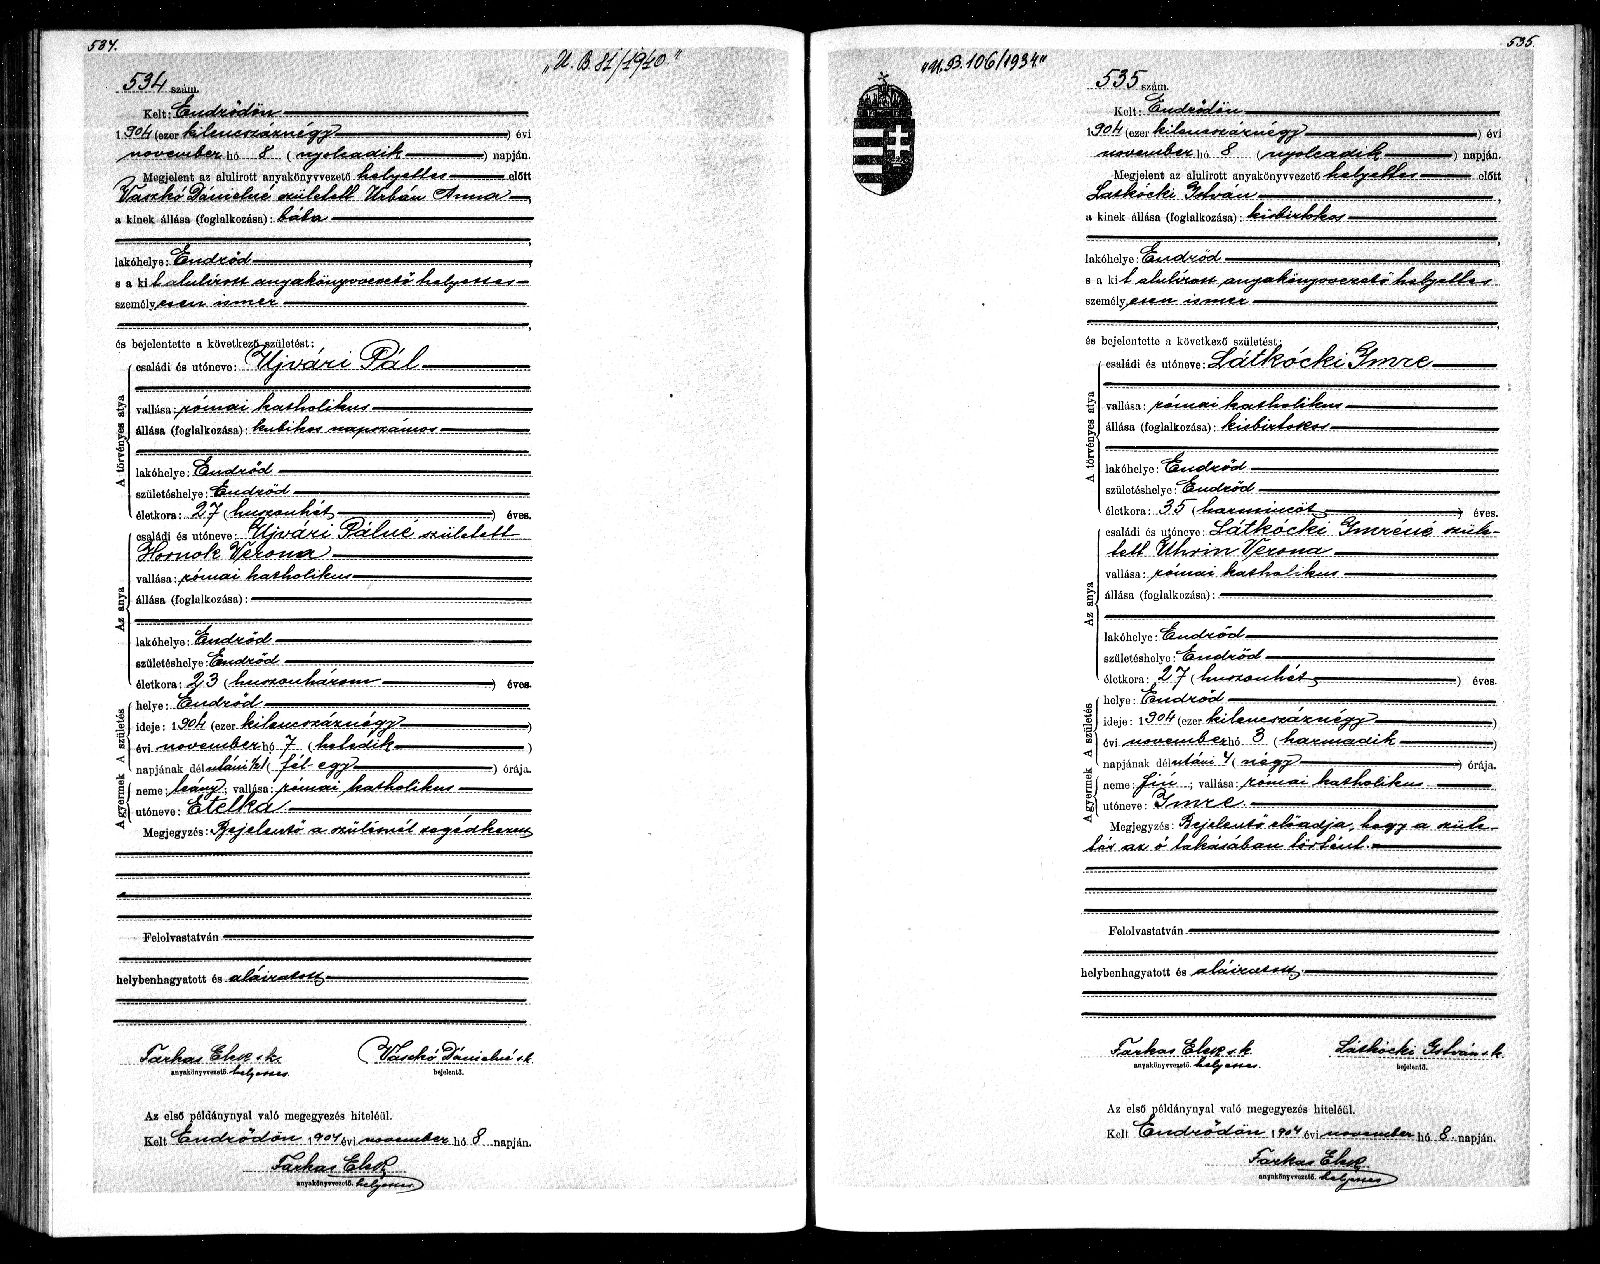 534.
„U. B. 81/1940."
534 szám.
Kelt: Endrődön
1904 (ezer kilencszáznégy) évi
november hó 8 (nyolcadik) napján.
Megjelent az alulirott anyakönyvvezető helyettes előtt
Vaszkó Dánielné született Urbán Anna,
a kinek állása (foglalkozása): bába
lakóhelye: Endrőd
s a kit alulírott anyakönyvvezető helyettes
személyesen ismer
és bejelentette a következő születést:
A törvényes atya
családi és utóneve: Ujvári Pál
vallása: római katholikus
állása (foglalkozása): kubikos napszámos
lakóhelye: Endrőd
születéshelye: Endrőd
életkora: 27 (huszonhét) éves.
Az anya
családi és utóneve: Ujvári Pálné született
Hornok Verona
vallása: római katholikus
állása (foglalkozása):
lakóhelye: Endrőd
születéshelye: Endrőd
életkora: 23 (huszonhárom) éves.
A születés
helye: Endrőd
ideje: 1904 (ezer kilencszáznégy)
évi november hó 7 (hetedik)
napjának délutáni ½1 (fél-egy) órája.
A gyermek
neme: leány; vallása: római katholikus
utóneve: Etelka
Megjegyzés: Bejelentő a szülésnél segédkezett
Felolvastatván
helybenhagyatott és aláiratott
Farkas Elek s.k.
anyakönyvvezető. helyettes.
Vaszkó Dánielné s.k.
bejelentő.
Az első példánynyal való megegyezés hiteléül.
Kelt Endrődön 1904 évi november hó 8 napján.
Farkas Elek
anyakönyvvezető. helyettes
535.
„U. B. 106/1934."
535 szám.
Kelt: Endrődön
1904 (ezer kilencszáznégy) évi
november hó 8 (nyolcadik) napján.
Megjelent az alulirott anyakönyvvezető helyettes előtt
Latkócki István,
a kinek állása (foglalkozása): kisbirtokos
lakóhelye: Endrőd
s a kit alulírott anyakönyvvezető helyettes
személyesen ismer
és bejelentette a következő születést:
A törvényes atya
családi és utóneve: Látkócki Imre
vallása: római katholikus
állása (foglalkozása): kisbirtokos
lakóhelye: Endrőd
születéshelye: Endrőd
életkora: 35 (harmincöt) éves.
Az anya
családi és utóneve: Látkócki Imréné szüle-
tett Uhrin Verona
vallása: római katholikus
állása (foglalkozása):
lakóhelye: Endrőd
születéshelye: Endrőd
életkora: 27 (huszonhét) éves.
A születés
helye: Endrőd
ideje: 1904 (ezer kilencszáznégy)
évi november hó 3 (harmadik)
napjának délutáni 4 (négy) órája.
A gyermek
neme: fiú; vallása: római katholikus
utóneve: Imre
Megjegyzés: Bejelentő előadja, hogy a szüle-
tés az ő lakásában történt.
Felolvastatván
helybenhagyatott és aláiratott
Farkas Elek s.k.
anyakönyvvezető. helyettes.
Látkócki István s.k.
bejelentő.
Az első példánynyal való megegyezés hiteléül.
Kelt Endrődön 1904 évi november hó 8 napján.
Farkas Elek
anyakönyvvezető. helyettes